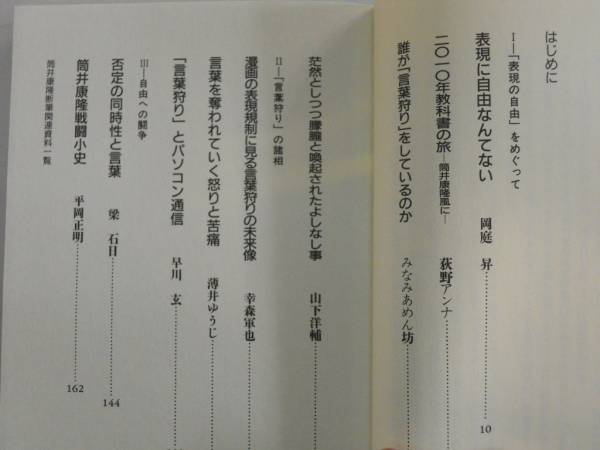 はじめに
I―「表現の自由」をめぐって
表現に自由なんてない 岡庭 昇 10
二〇一〇年教科書の旅―筒井康隆風に― 荻野アンナ
誰が「言葉狩り」をしているのか みなみあめん坊
茫然としつつ朦朧と喚起されたよしなし事 山下洋輔
II―「言葉狩り」の諸相
漫画の表現規制に見る言葉狩りの未来像 幸森軍也
言葉を奪われていく怒りと苦痛 薄井ゆうじ
「言葉狩り」とパソコン通信 早川 玄
III―自由への闘争
否定の同時性と言葉 梁 石日 144
筒井康隆戦闘小史 平岡正明 162
筒井康隆断筆関連資料一覧